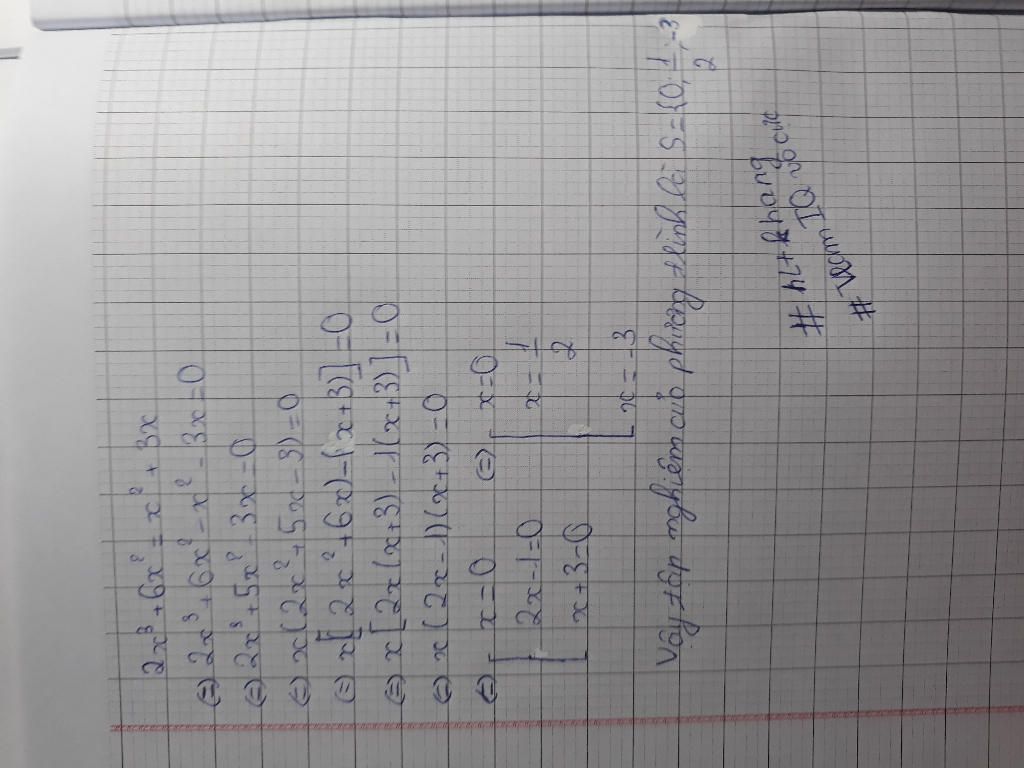 2x³ + 6x² = x² + 3x
(=) 2x³ + 6x² - x² - 3x = 0
(=) 2x³ + 5x² - 3x = 0
(=) x(2x² + 5x - 3) = 0
(=) x[(2x² + 6x) - (x+3)] = 0
(=) x[2x(x+3) - 1(x+3)] = 0
(=) x(2x-1)(x+3) = 0
(=) [x = 0 (=) [x = 0
[2x-1=0 [x = 1/2
[x+3=0 [x = -3
Vậy tập nghiệm của phương trình là: S = {0; 1/2; -3
#
# Team IQ vô cực